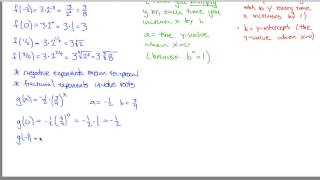 f(-3) = 3·2⁻³ = 3/2³ = 3/8
f(0) = 3·2⁰ = 3·1 = 3
f(½) = 3·2^(½) = 3√2
f(¾) = 3·2^(¾) = 3
* negative exponents mean
* fractional exponents involve roots
g(x) = -½·(¾)ˣ a = -½ b = ¾
g(0) = -½(¾)⁰ = -½·1 = -½
g(-1) =
y by, each time you
x by 1.
a = the y-value
when x=0
(because b⁰=1)
b · y every time
x increases by 1)
b = y-intercept (the
y-value when x=0)